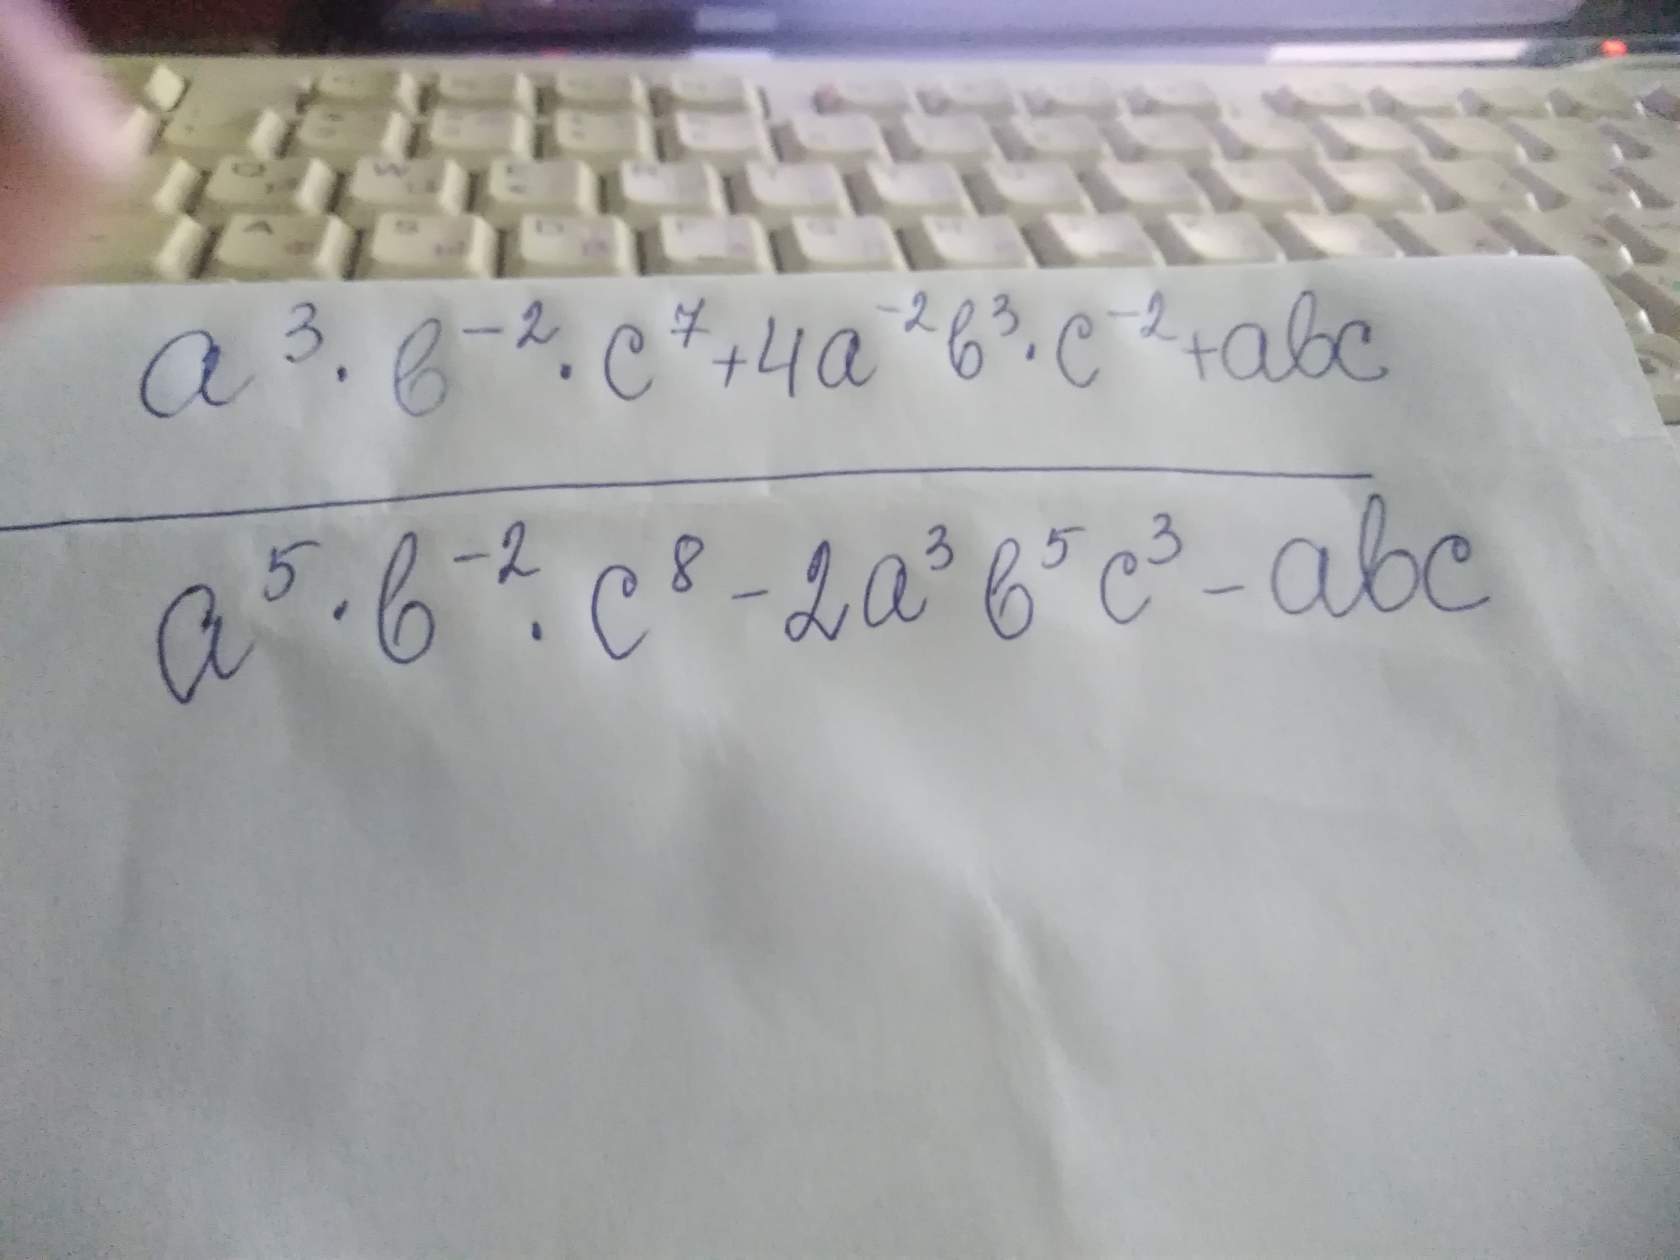 a³·b⁻²·c⁷+4a⁻²b³·c⁻²+abc
a⁵·b⁻²·c⁸-2a³b⁵c³-abc